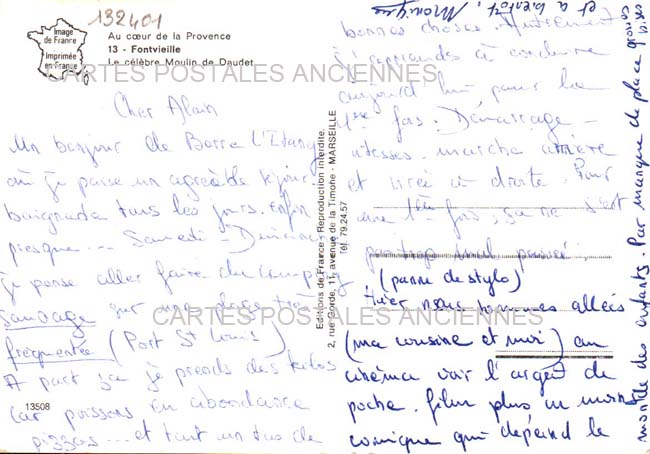 132401
Image
de France
Imprimée
en France
Au cœur de la Provence
13 - Fontvieille
Le célèbre Moulin de Daudet
CARTES POSTALES ANCIENNES
Cher Alain
Un bonjour de Berre l'Etang
où je passe un agréable séjour
baignade tous les jours. Enfin
presque... Samedi - Dimanche
je pense aller faire du camping
sauvage sur une plage très
fréquentée (Port St Louis)
A part ça je prends des kilos
car poissons en abondance
pizzas... et tout un tas de
13508
Editions de France - Reproduction interdite.
2, rue Gorde, 11, avenue de la Timone - MARSEILLE
Tél. 79.24.57
bonnes choses. Autrement
j'apprends à conduire
aujourd'hui pour la
1ère fois. Démarrage -
vitesses - marche arrière
et virée à droite. Pour
une 1ère fois, ça ne s'est
pas trop mal passé.
(panne de stylo)
Hier nous sommes allées
(ma cousine et moi) au
cinéma voir l'argent de
poche. film plus ou moins
comique qui dépeind le
monde des enfants. Par manque de place grosses
bises
et à bientôt. Monique
CARTES POSTALES ANCIENNES